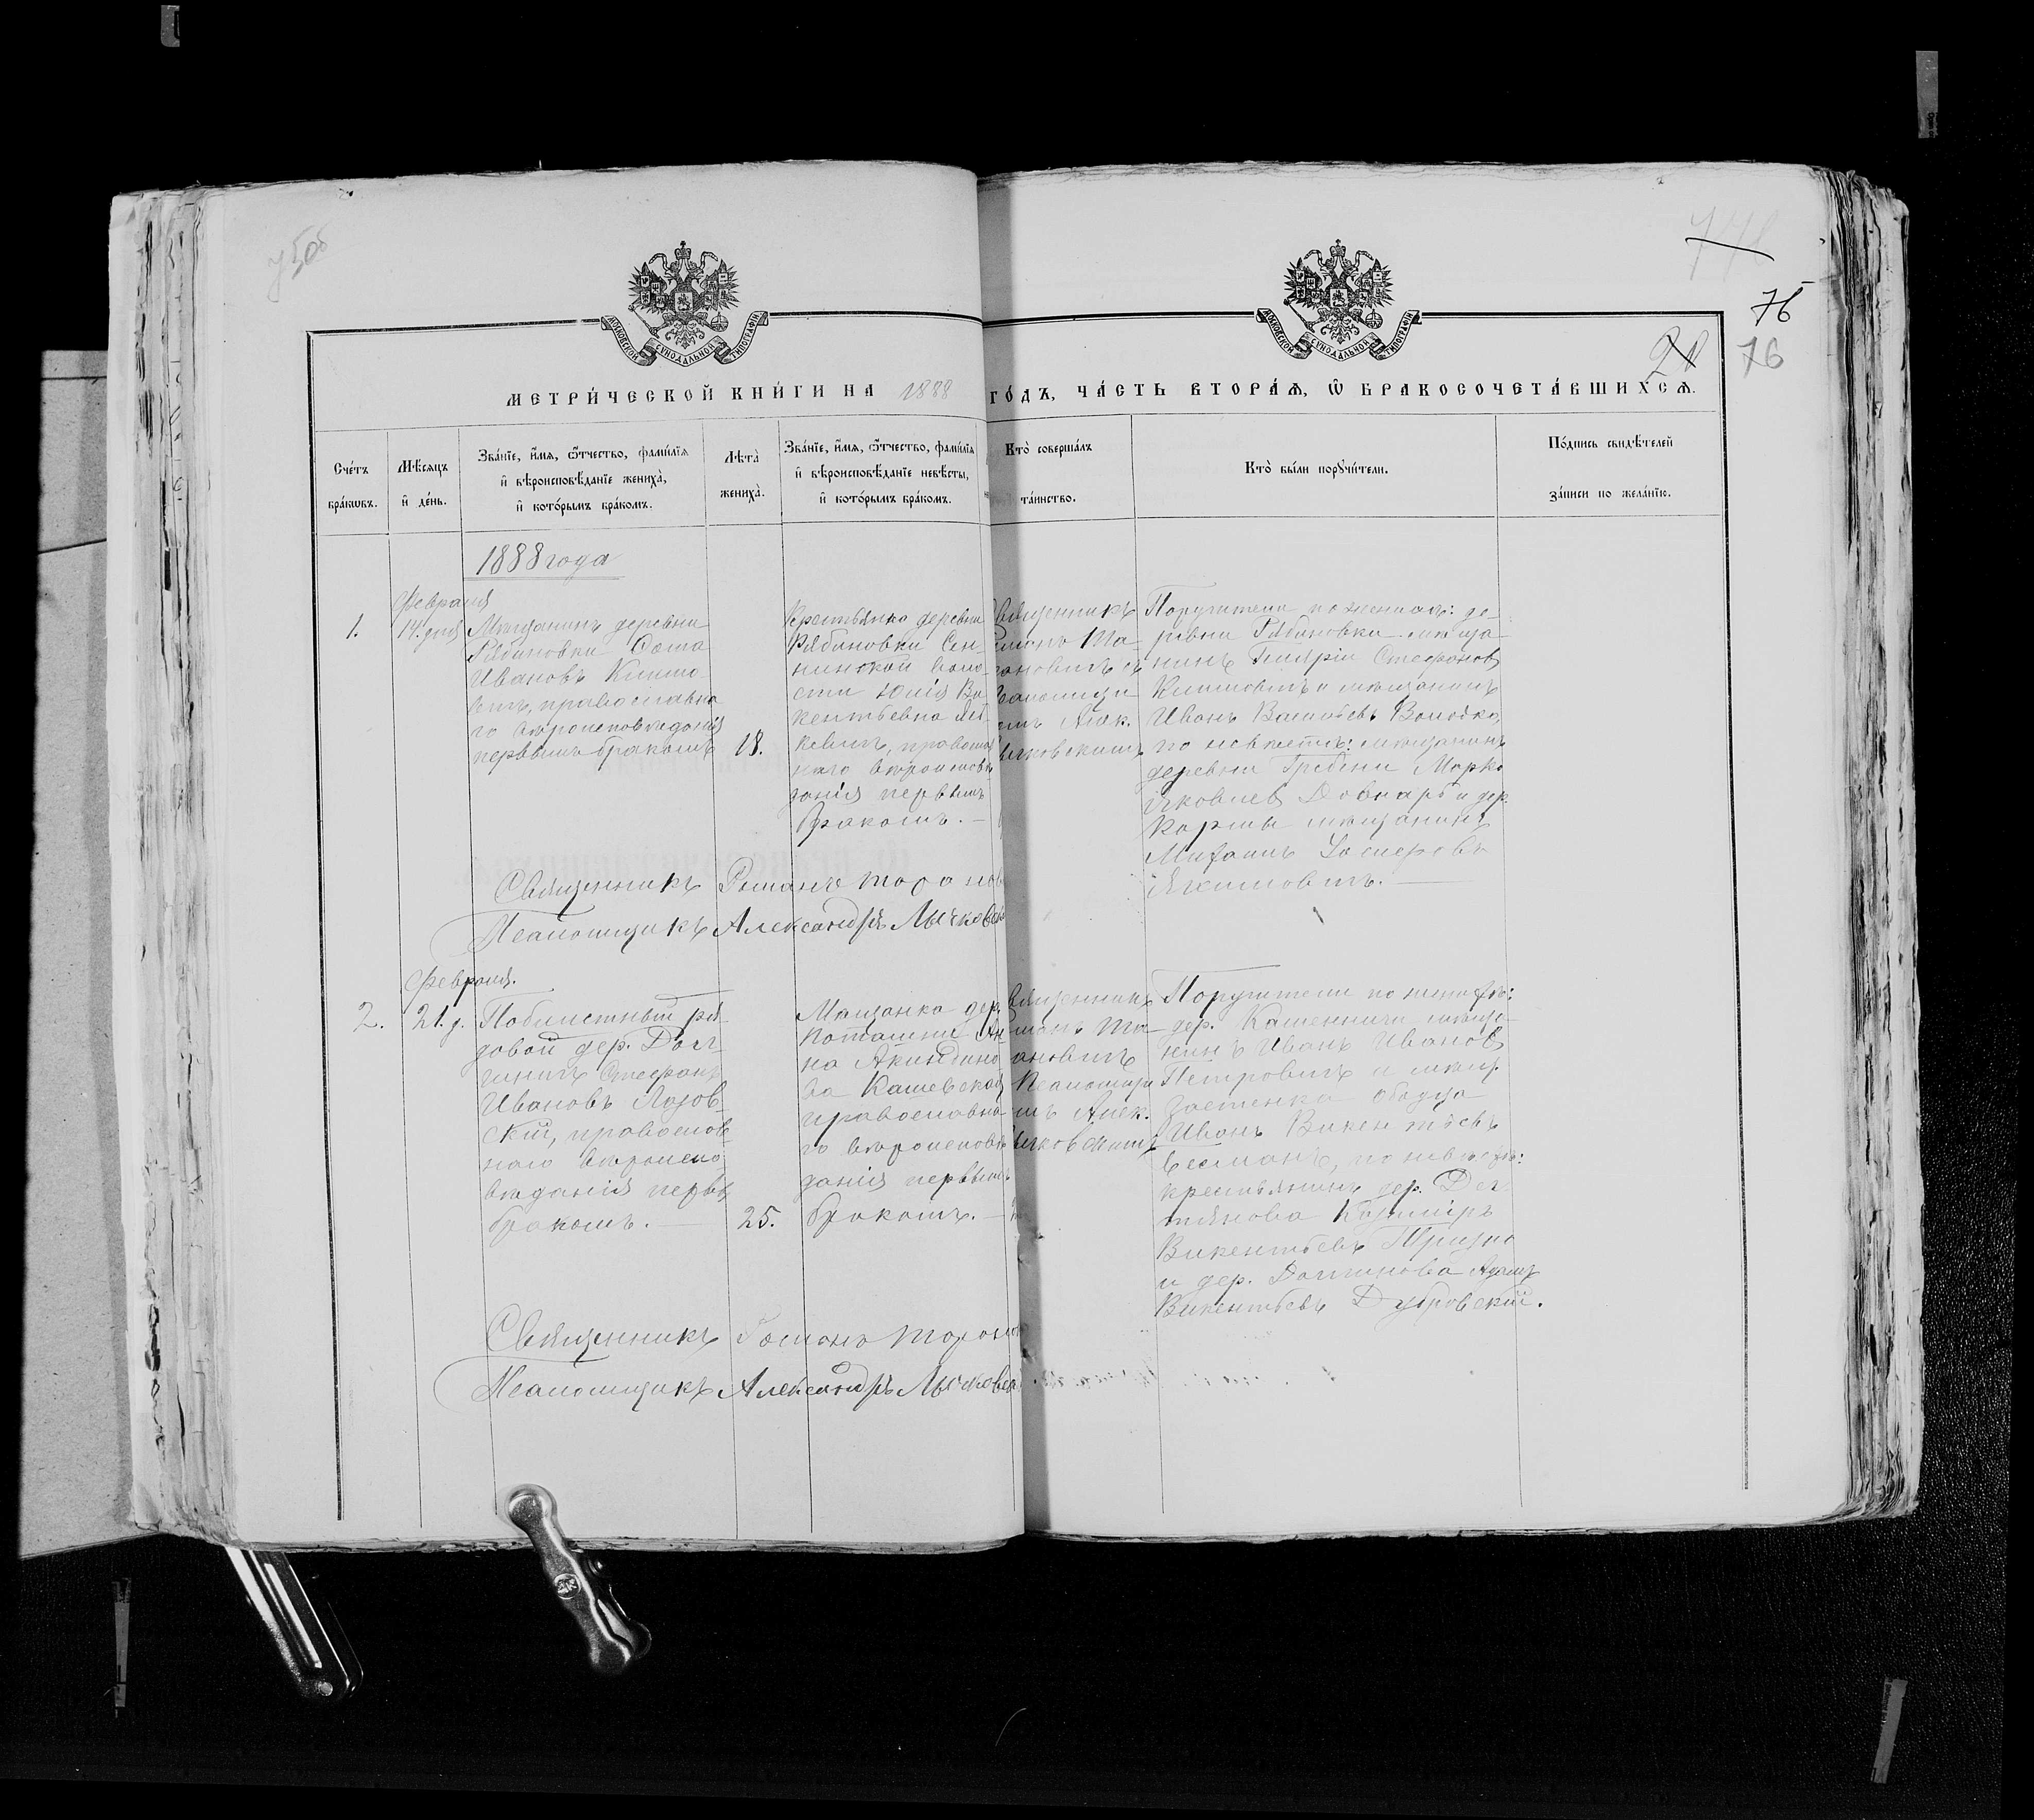 у5об
МОСКОВСКОЙ СѴНОДАЛЬНОЙ ТИПОГРАФІИ
МОСКОВСКОЙ СѴНОДАЛЬНОЙ ТИПОГРАФІИ
76
20
76
МЕТРИ́ЧЕСКОЙ КНИ́ГИ НА 1888 ГО́ДЪ, ЧА́СТЬ ВТОРА́Ѧ, Ѽ БРАКОСОЧЕТА́ВШИХСѦ.
Сче́тъ
бра́кѡвъ.
Мѣ́сяцъ
и҆ де́нь.
Зва́нїе, и҆́мя, ѻ҆́тчество, фами́лїя
и҆ вѣроисповѣ́данїе жениха̀,
и҆ кото́рымъ бра́комъ.
Лѣта̀
жениха̀.
Зва́нїе, и҆́мя, ѻ҆́тчество, фами́лїя
и҆ вѣроисповѣ́данїе невѣ́сты,
и҆ кото́рымъ бра́комъ.
Кто̀ соверша́лъ
та́инство.
Кто̀ бы́ли порꙋчи́тели.
По́дпись свидѣ́телей
за́писи по жела́нїю.
1888 года
1.
Февраля
14. дня
Мѣщанинъ деревни
Рябиновки Ѳома
Ивановъ Климо-
вичъ, православна
го вѣроисповѣданія
первымъ бракомъ
18.
Крестьянка деревни
Рябиновки Сен-
нинской воло-
сти Юлія Ви
кентьевна
кевичъ, правосла
наго вѣроисповѣ
данія первымъ
бракомъ. —
вященникъ
манъ Та-
рановичъ съ
саломщи-
мъ Алек.
ычковскимъ
Поручители по женихѣ: де-
ревни Рябиновки мѣща-
нинъ Стефановъ
Климовичъ и мѣщанинъ
Иванъ Васильевъ Володко,
по невѣстѣ: мѣщанинъ
деревни Гребени Марко
Яковлевъ Довнаръ и дер.
Кормы мѣщанинъ
Михаилъ
Якимовичъ. —
Священникъ Романъ Таранов
Псаломщикъ Александръ Лычковск
2.
Февраля.
21. д.
Побилетный ря-
довой дер. Дол-
гиничъ Стефанъ
Ивановъ Лозов-
скій, православ-
наго вѣроиспо
вѣданія первъ
бракомъ. —
25.
Мѣщанка дер.
Поташни Ан-
на Акиндино
ва Кашевская
православна
го вѣроисповѣ
данія первымъ
бракомъ. —
вященникъ
манъ Та-
ановичъ
Псаломщи
мъ Алек.
ычковскимъ
Поручители по женихѣ:
дер. Каменничи мѣща-
нинъ Иванъ Ивановъ
Петровичъ и мѣщ.
застенка
Иванъ Викентьевъ
Есьманъ, по невѣстѣ:
крестьянинъ дер. Дег-
тянова Казиміръ
Викентьевъ Тризно
и дер. Долгинова Адамъ
Викентьевъ Дубровскій.
Священникъ Романъ Таранов
Псаломщикъ Александръ Лычковск